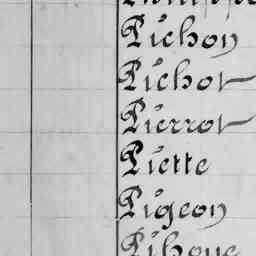 Pichon
Pichot
Pierrot
Piette
Pigeon